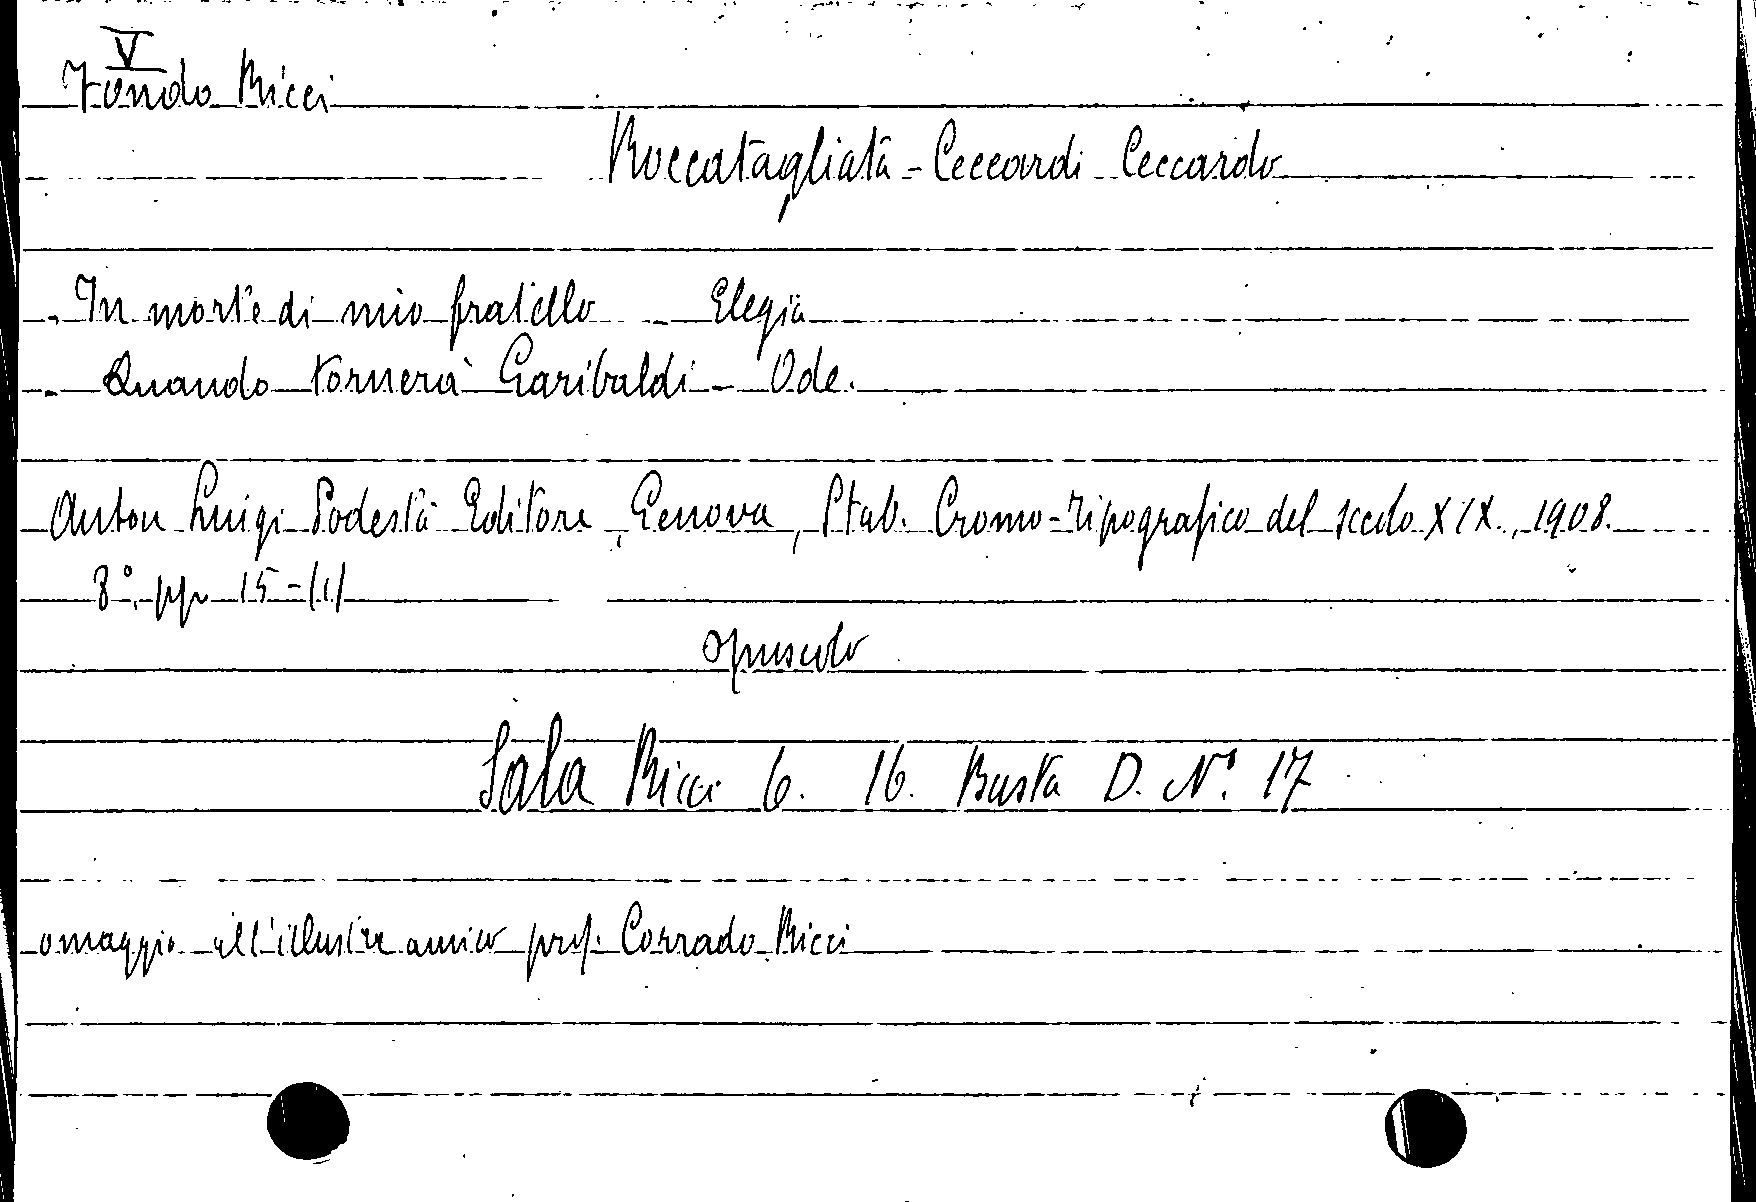 V
Fondo Ricci
Roccatagliata - Ceccardi Ceccardo
- In morte di mio fratello - Elegia
- Quando tornerà Garibaldi - Ode.
Anton Luigi Podestà Editore, Genova, Stab. Cromo-Tipografico del secolo XIX., 1908.
8°, pp 15-(1)
opuscolo
Sala Ricci 6. 16. Busta D. N° 17
omaggio all'illustre amico prof. Corrado Ricci